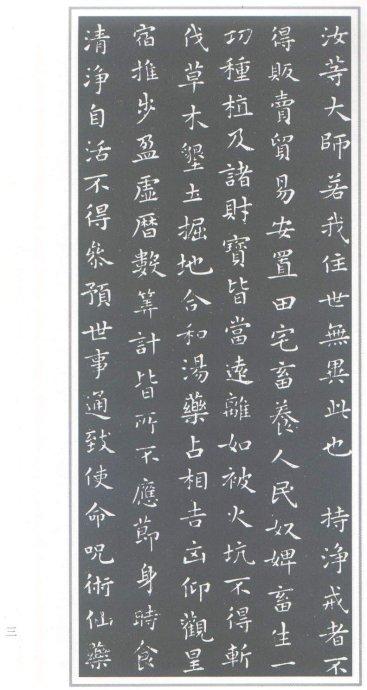 汝等大師若我住世無異此也　持淨戒者不
得販賣貿易安置田宅畜養人民奴婢畜生一
切種植及諸財寶皆當遠離如被火坑不得斬
伐草木墾土掘地合和湯藥占相吉凶仰觀星
宿推步盈虛曆數筭計皆所不應節身時食
清淨自活不得參預世事通致使命呪術仙藥
三